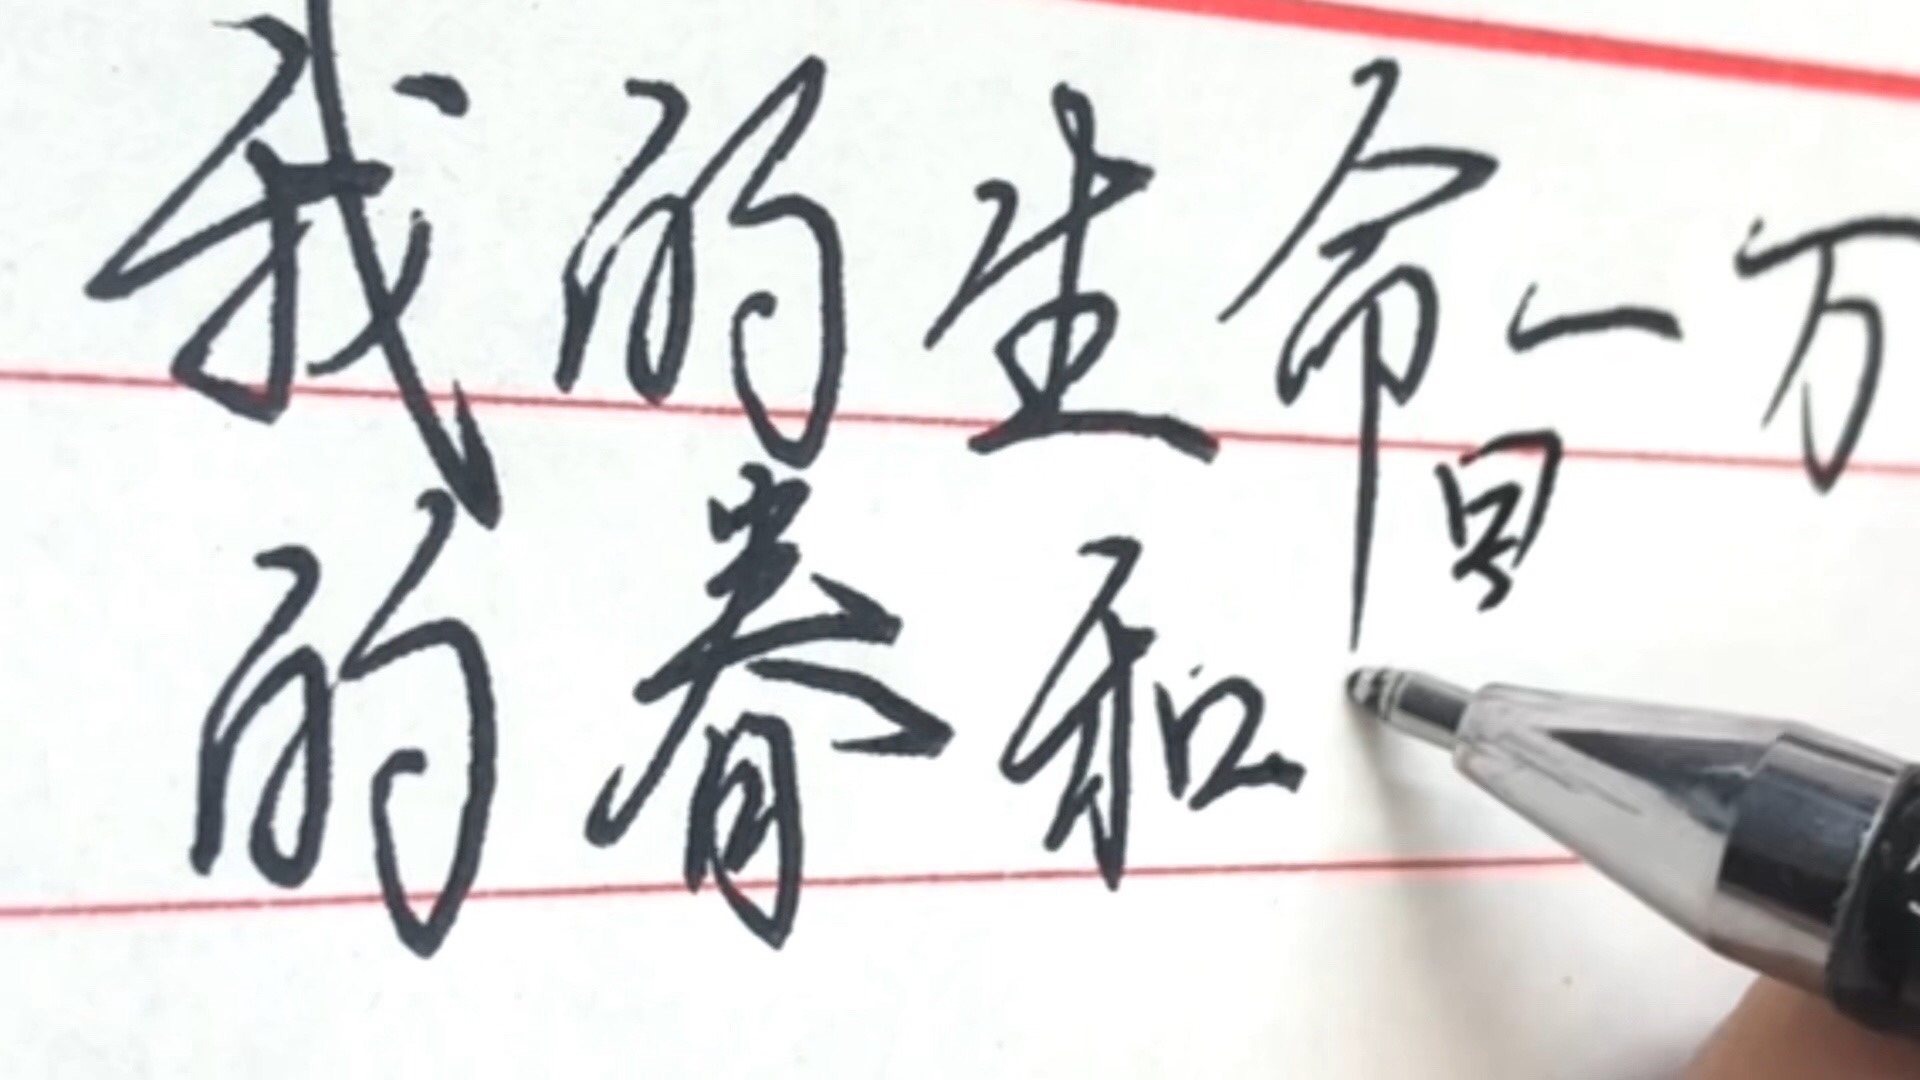 我的生命一万
的春和